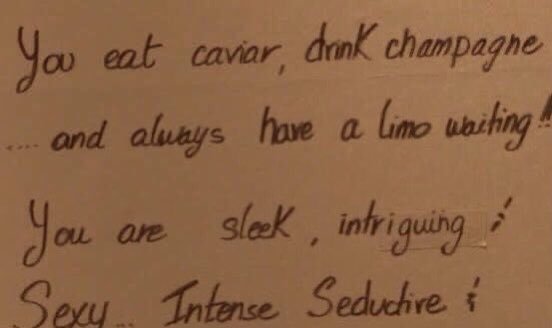 You eat caviar, drink champagne
.... and always have a limo waiting!!
You are sleek, intriguing &
Sexy... Intense Seductive &